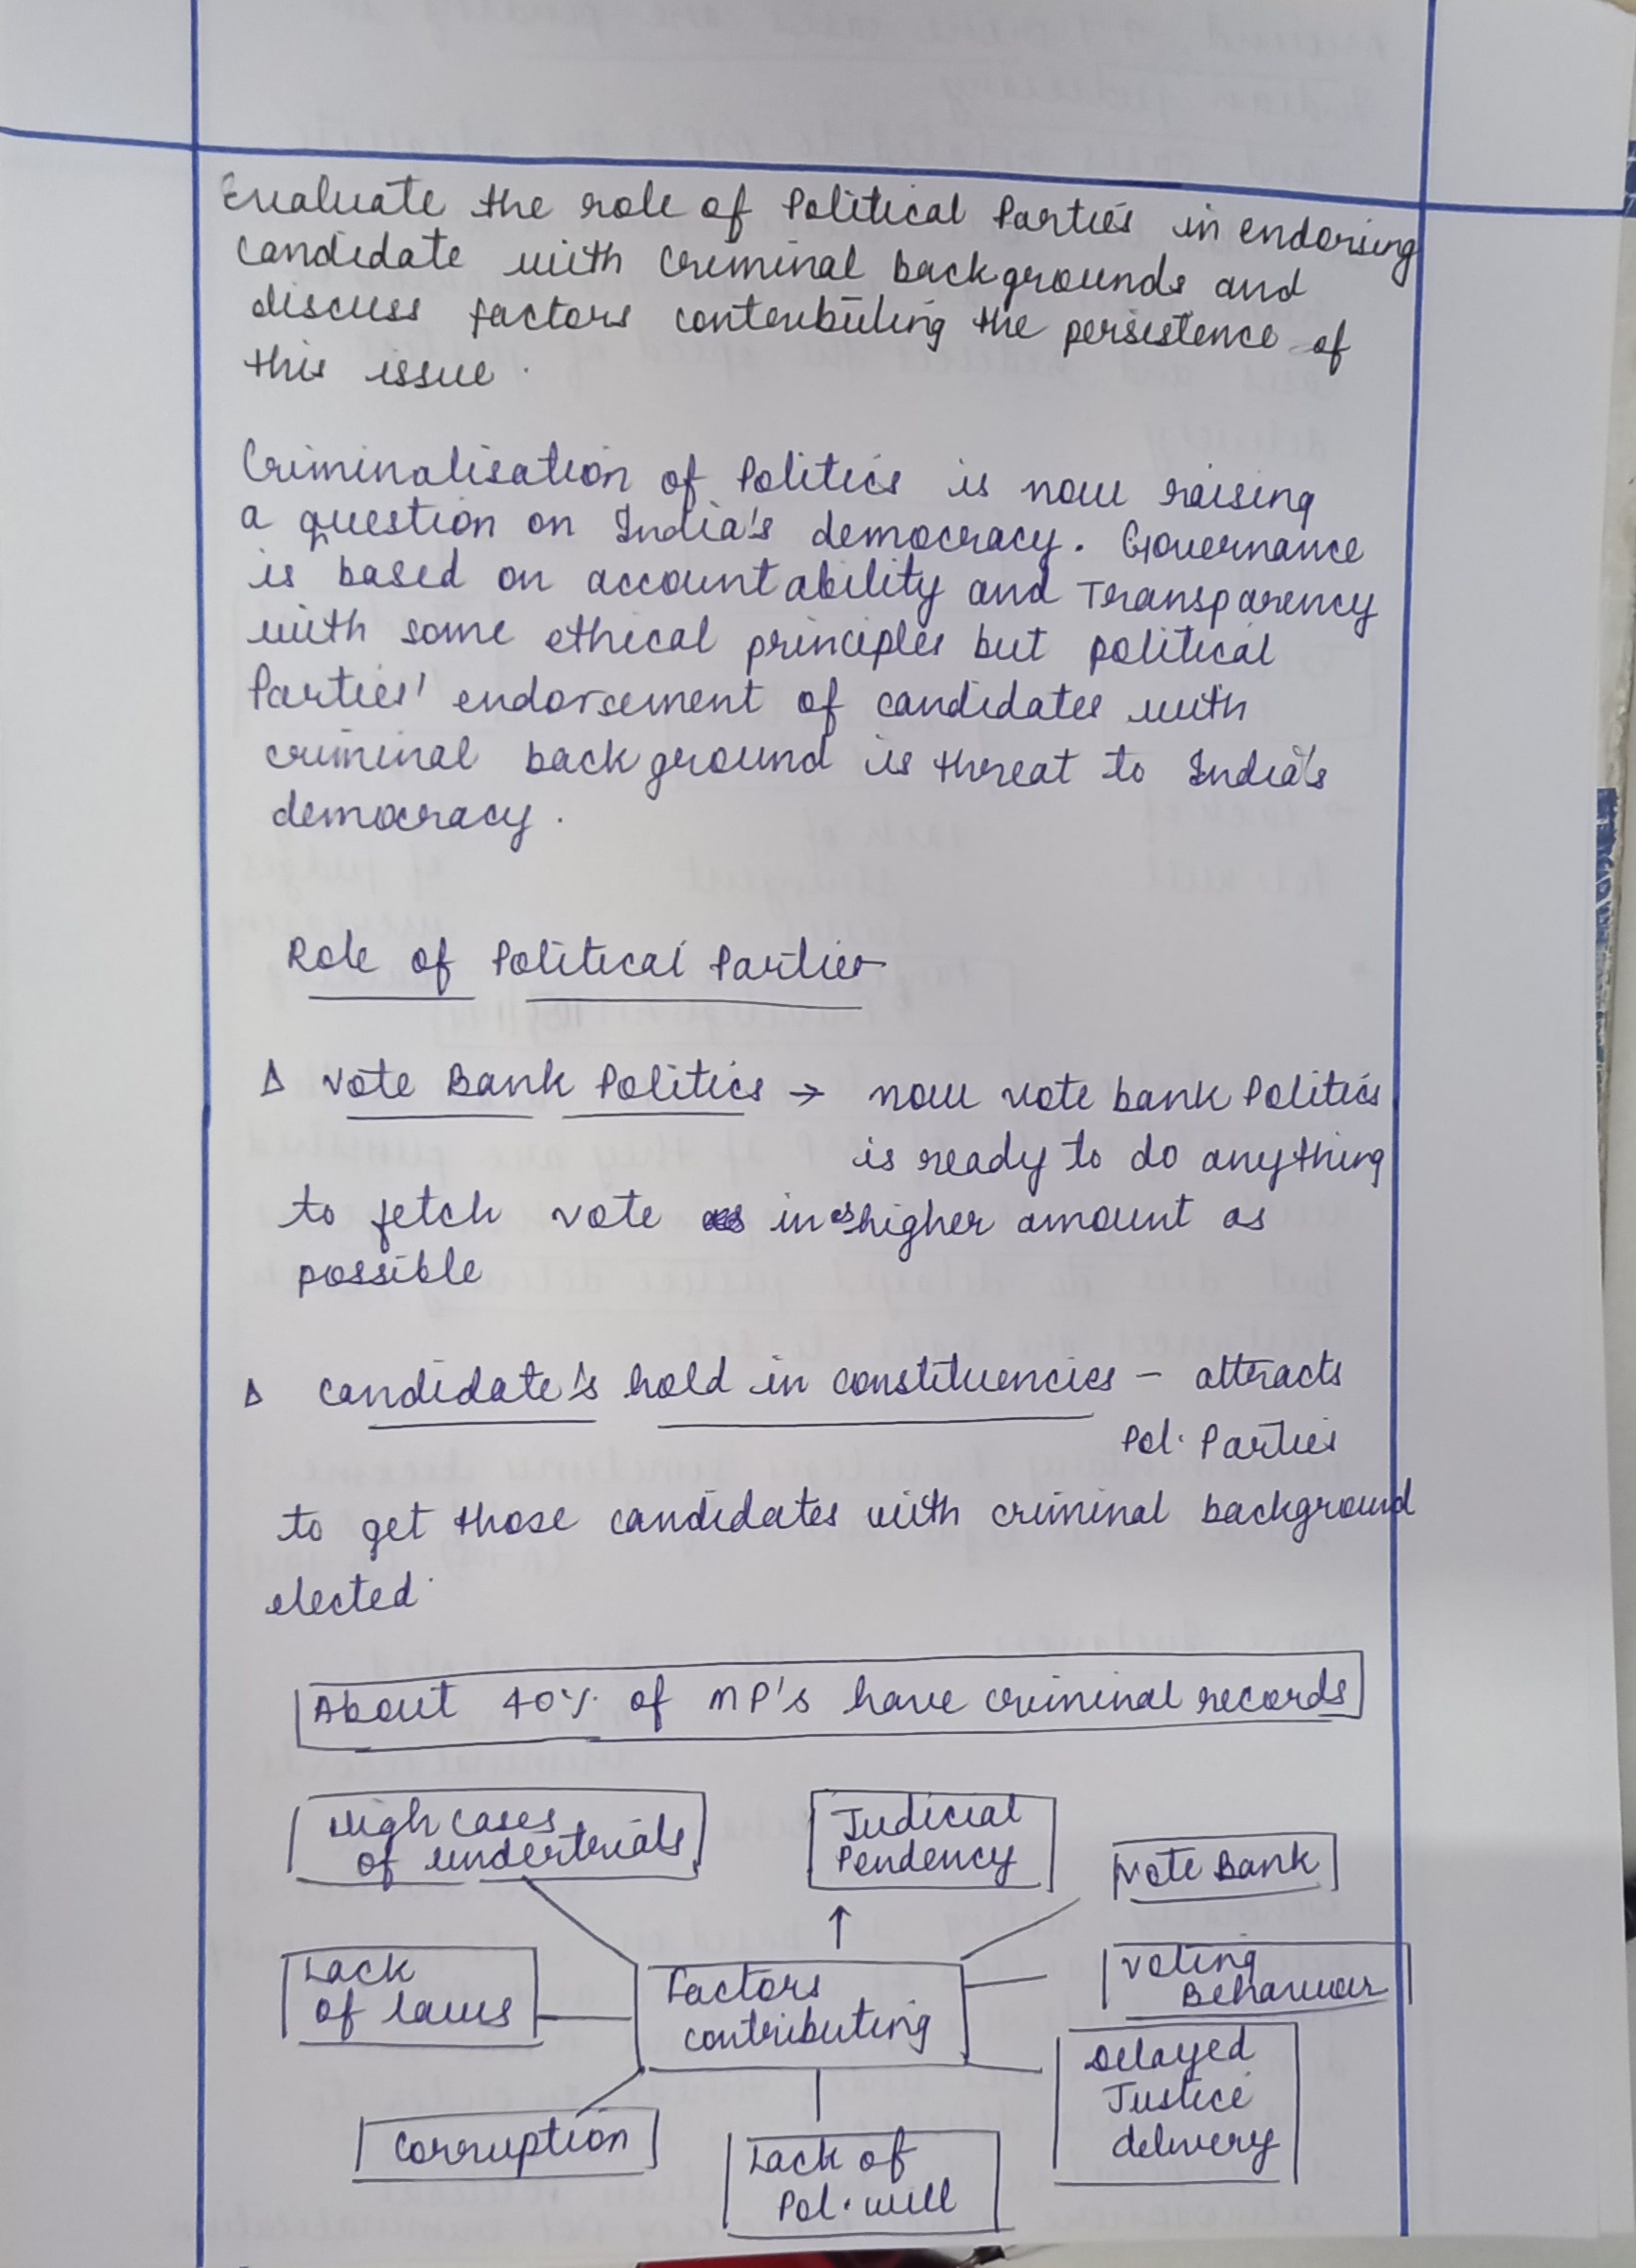 Evaluate the role of Political Parties in endorsing
candidate with criminal backgrounds and
discuss factors contributing the persistence of
this issue.
Criminalisation of Politics is now raising
a question on India's democracy. Governance
is based on accountability and Transparency
with some ethical principles but political
Parties' endorsement of candidates with
criminal background is threat to India's
democracy.
Role of Political Parties
Δ Vote Bank Politics → now vote bank Politics
is ready to do anything
to fetch vote in as higher amount as
possible
Δ candidate's hold in constituencies - attracts
Pol. Parties
to get those candidates with criminal background
elected.
About 40% of MP's have criminal records
High cases
of undertrials
Judicial
Pendency
Vote Bank
Lack
of laws
Factors
contributing
Voting
Behaviour
Delayed
Justice
delivery
Corruption
Lack of
Pol. will